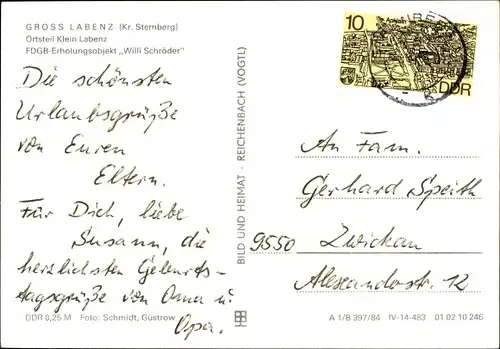 GROSS LABENZ (Kr. Sternberg)
Ortsteil Klein Labenz
FDGB-Erholungsobjekt „Willi Schröder"
Die schönsten
Urlaubsgrüße
von Euren
Eltern.
Für Dich, liebe
Susann, die
herzlichsten Geburts-
tagsgrüße von Oma u.
Opa.
DDR 0,25 M Foto: Schmidt, Güstrow
BILD UND HEIMAT · REICHENBACH (VOGTL)
10
DDR
An Fam.
Gerhard Speith
9550 Zwickau
Alexanderstr. 12
A 1/B 397/84 IV-14-483 01 02 10 246